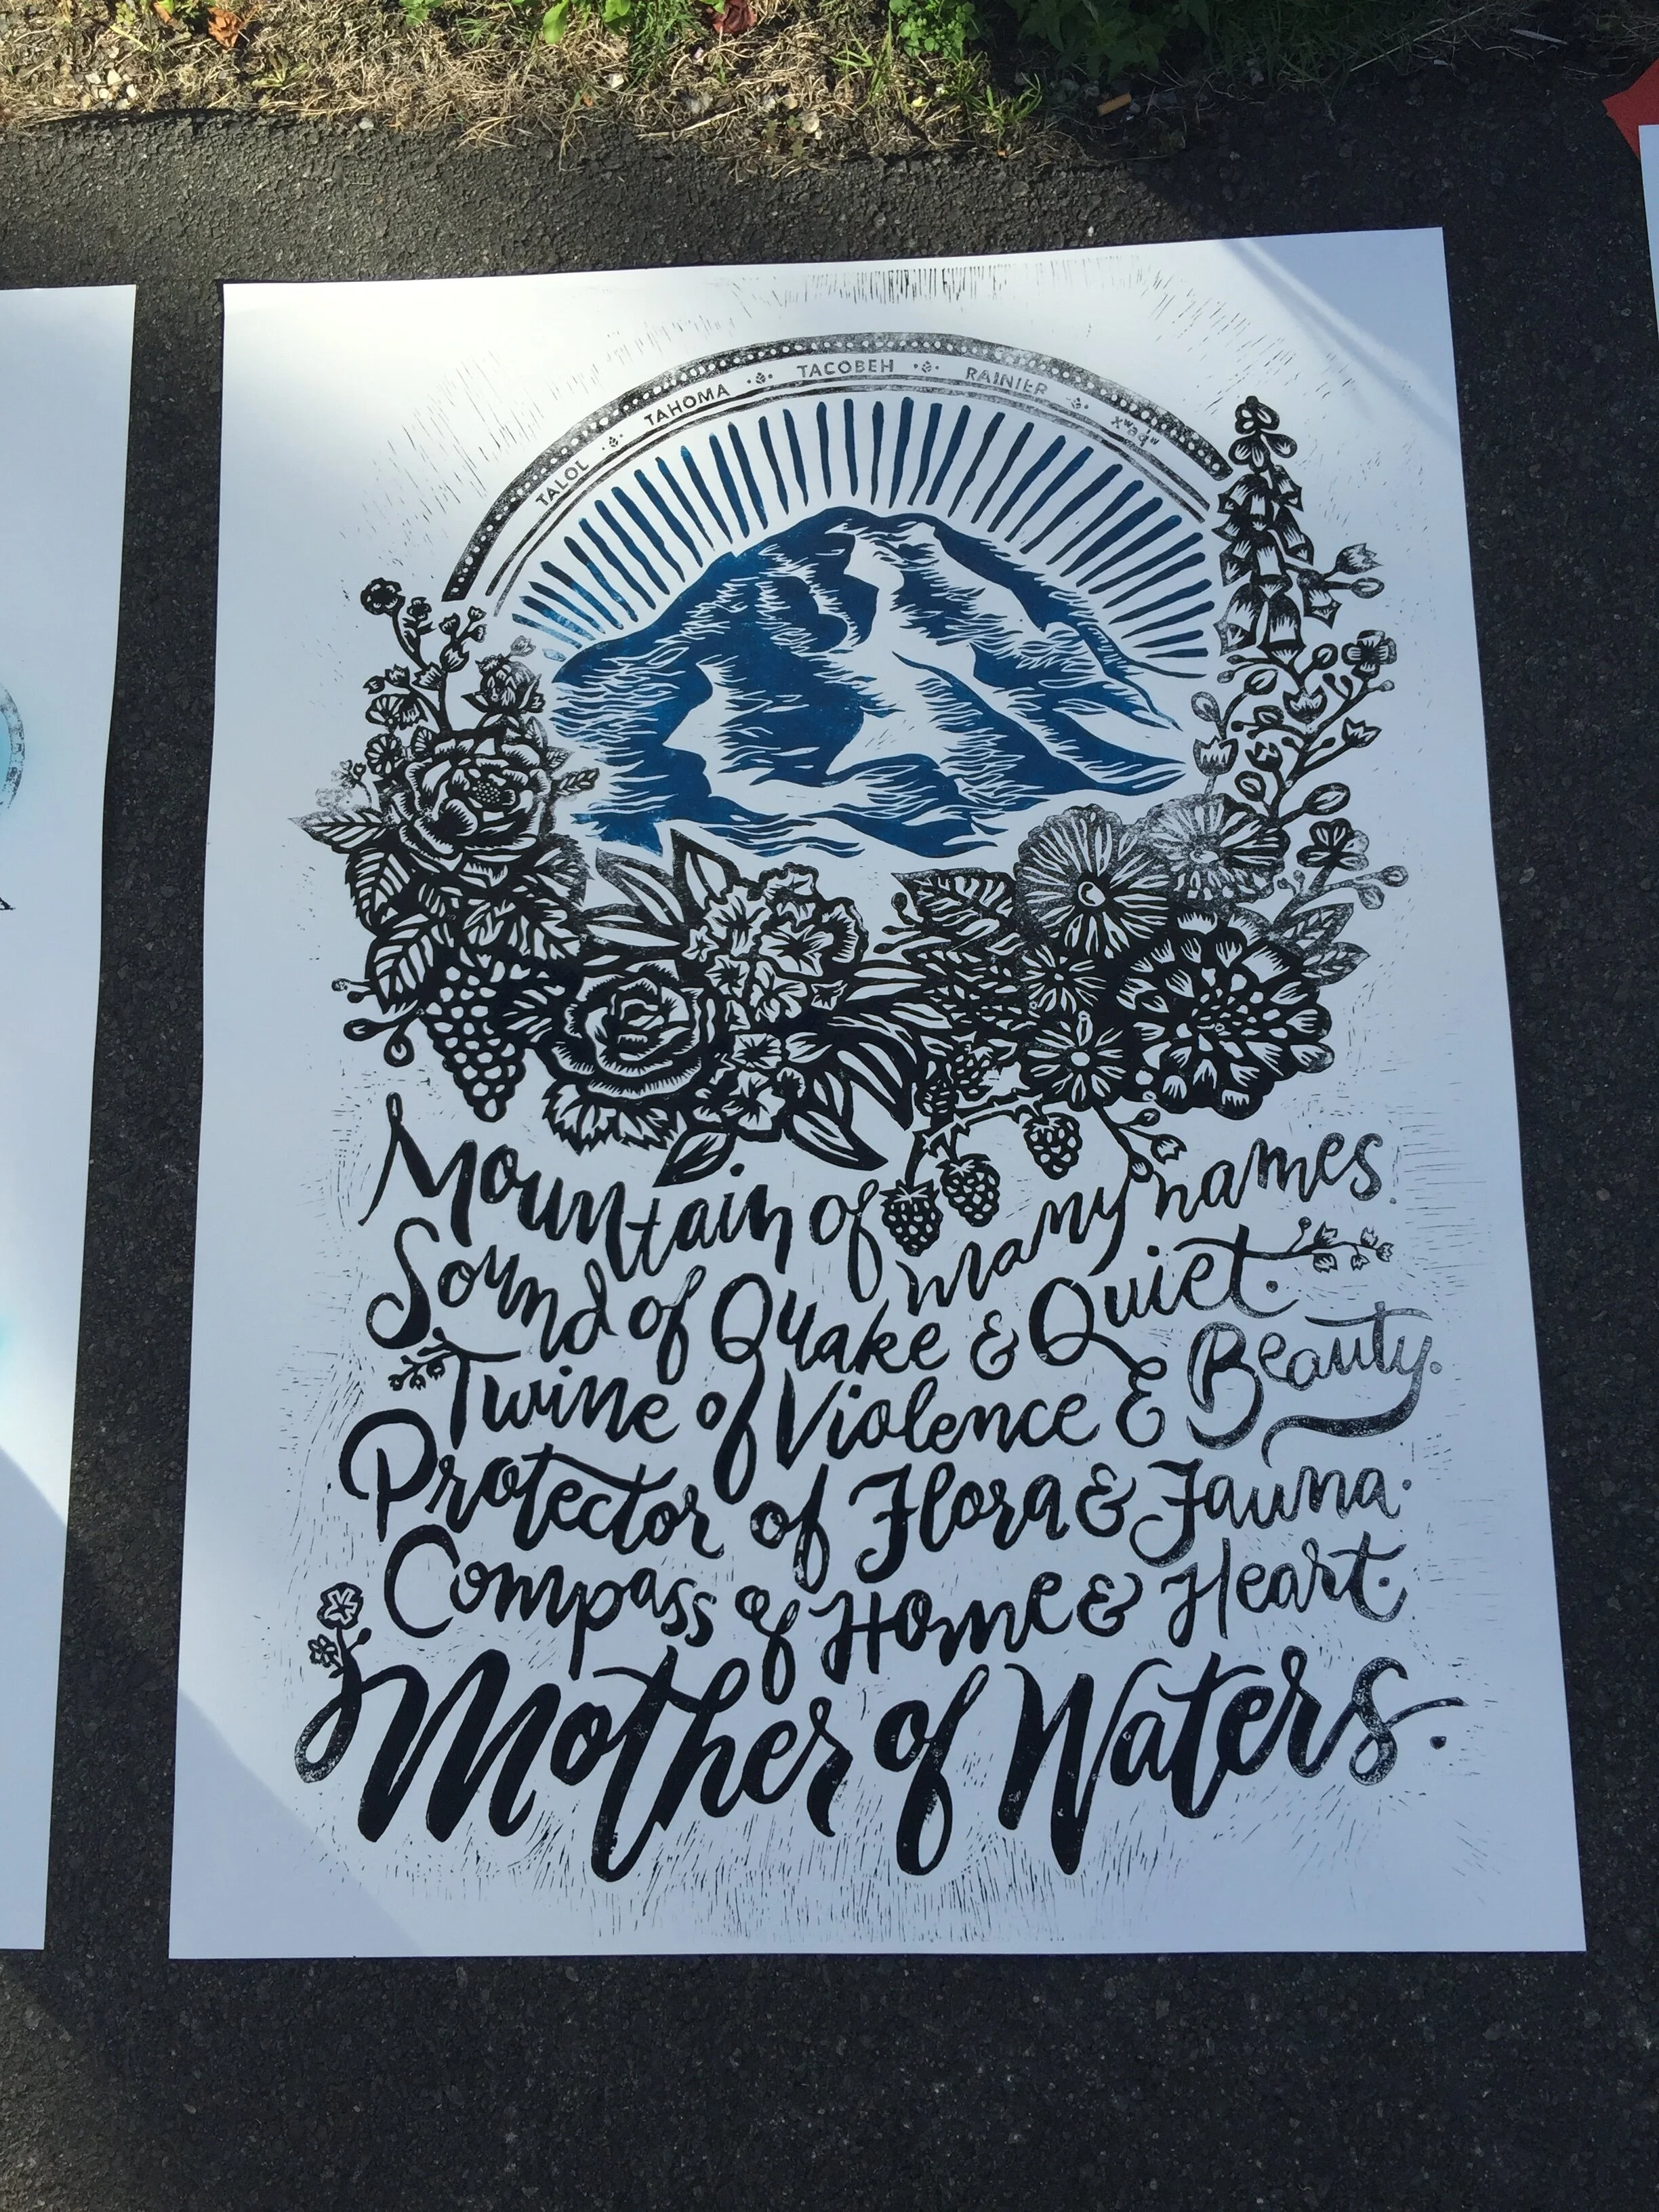 TALOL TAHOMA TACOBEH RAINIER
Mountain of many names.
Sound of Quake & Quiet.
Twine of Violence & Beauty.
Protector of Flora & Fauna.
Compass of Home & Heart.
Mother of Waters.